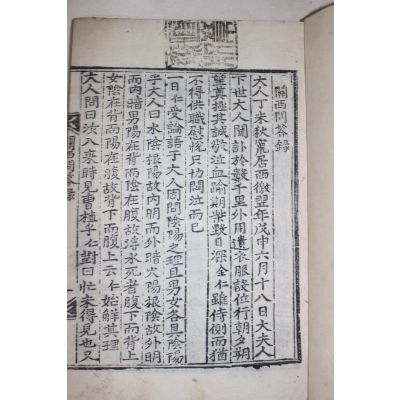 關西問答錄
大人丁未秋竄居西徼翌年戊申六月十八日大夫人
下世大人聞訃於數千里外用遺衣服設位行朝夕朔
望奠極其誠敬泣血喩期柴毀日深全仁雖侍側而猶
不得供職慰懷只切悶泣而已
一日仁受論語于大人因問陰陽之理且男女各具陰陽
乎大人曰水陰根陽故內明而外暗火陽根陰故外明
而內暗男陽在背而陰在腹故浮水死者腹下而背上
女陰在背而陽在腹故背下而腹上云仁始觧其理
大人問曰汝入來時見曹植乎仁對曰忙未得見也又
關西問答錄